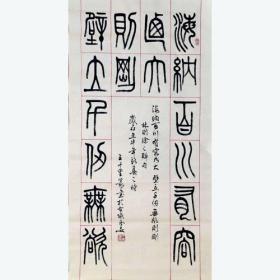 海納百川有容
乃大
則剛
壁立千仞無欲
海納百川有容乃大壁立千仞無欲則剛
林則徐之聯句